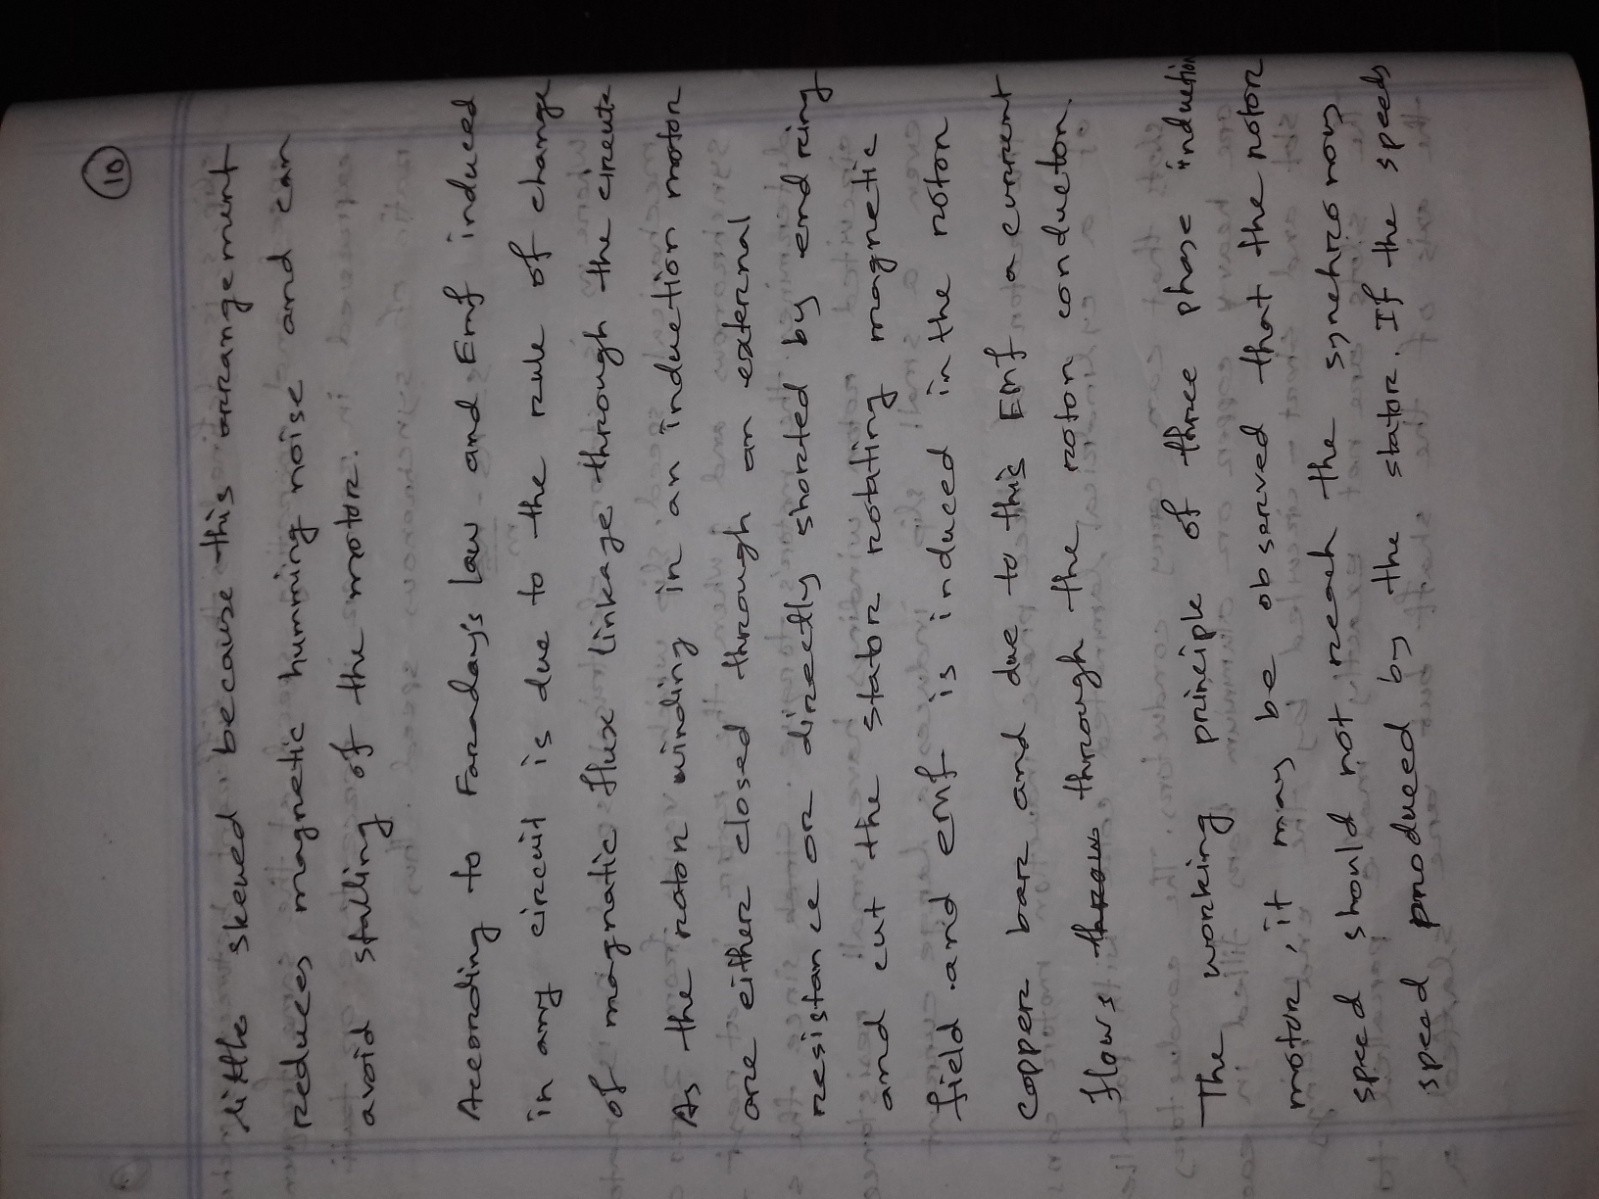 10
little skewed because this arrangement
reduces magnetic humming noise and can
avoid stalling of the motor.
According to Faraday's law and Emf induced
in any circuit is due to the rule of change
of magnatic flux linkage through the circuit
As the rotor winding in an induction motor
are either closed through an external
resistance or directly shorted by end ring
and cut the stator rotating magnetic
field and emf is induced in the rotor
copper bar and due to this Emf a current
flows through the rotor conductor.
The working principle of three phase induction
motor, it may be observed that the rotor
speed should not reach the synchronous
speed produced by the stator. If the speeds